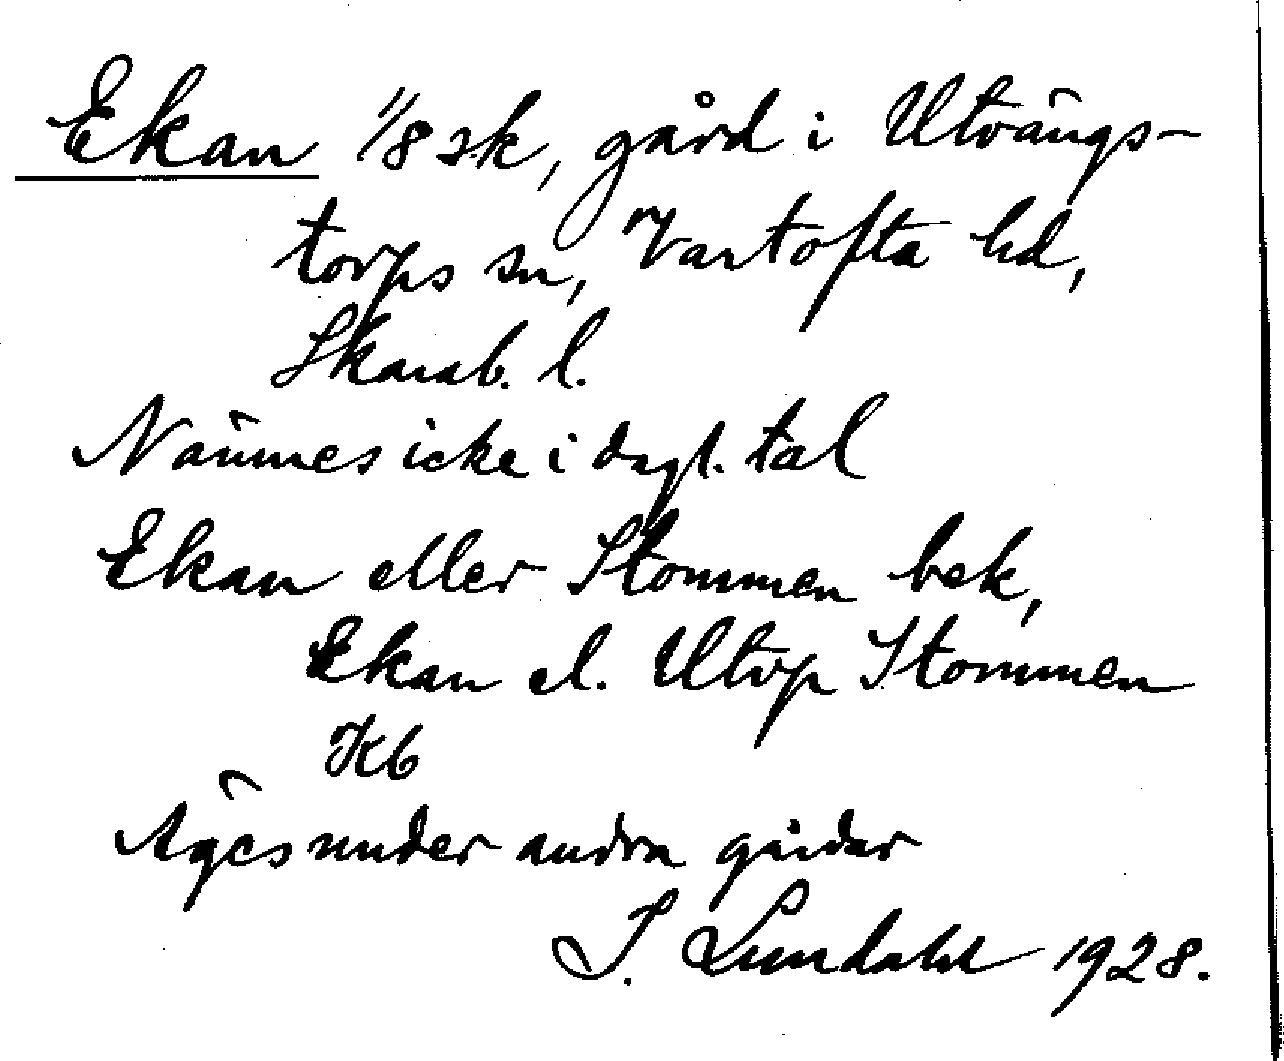 Ekan 1/8 sk, gård i Utvängs-
torps sn, Vartofta hd,
Skarab. l.
Nämnes icke i dagl. tal
Ekan eller Stommen bek,
Ekan el. Utvp Stommen
Kb
Äges under andra gårdar
I. Lundahl 1928.